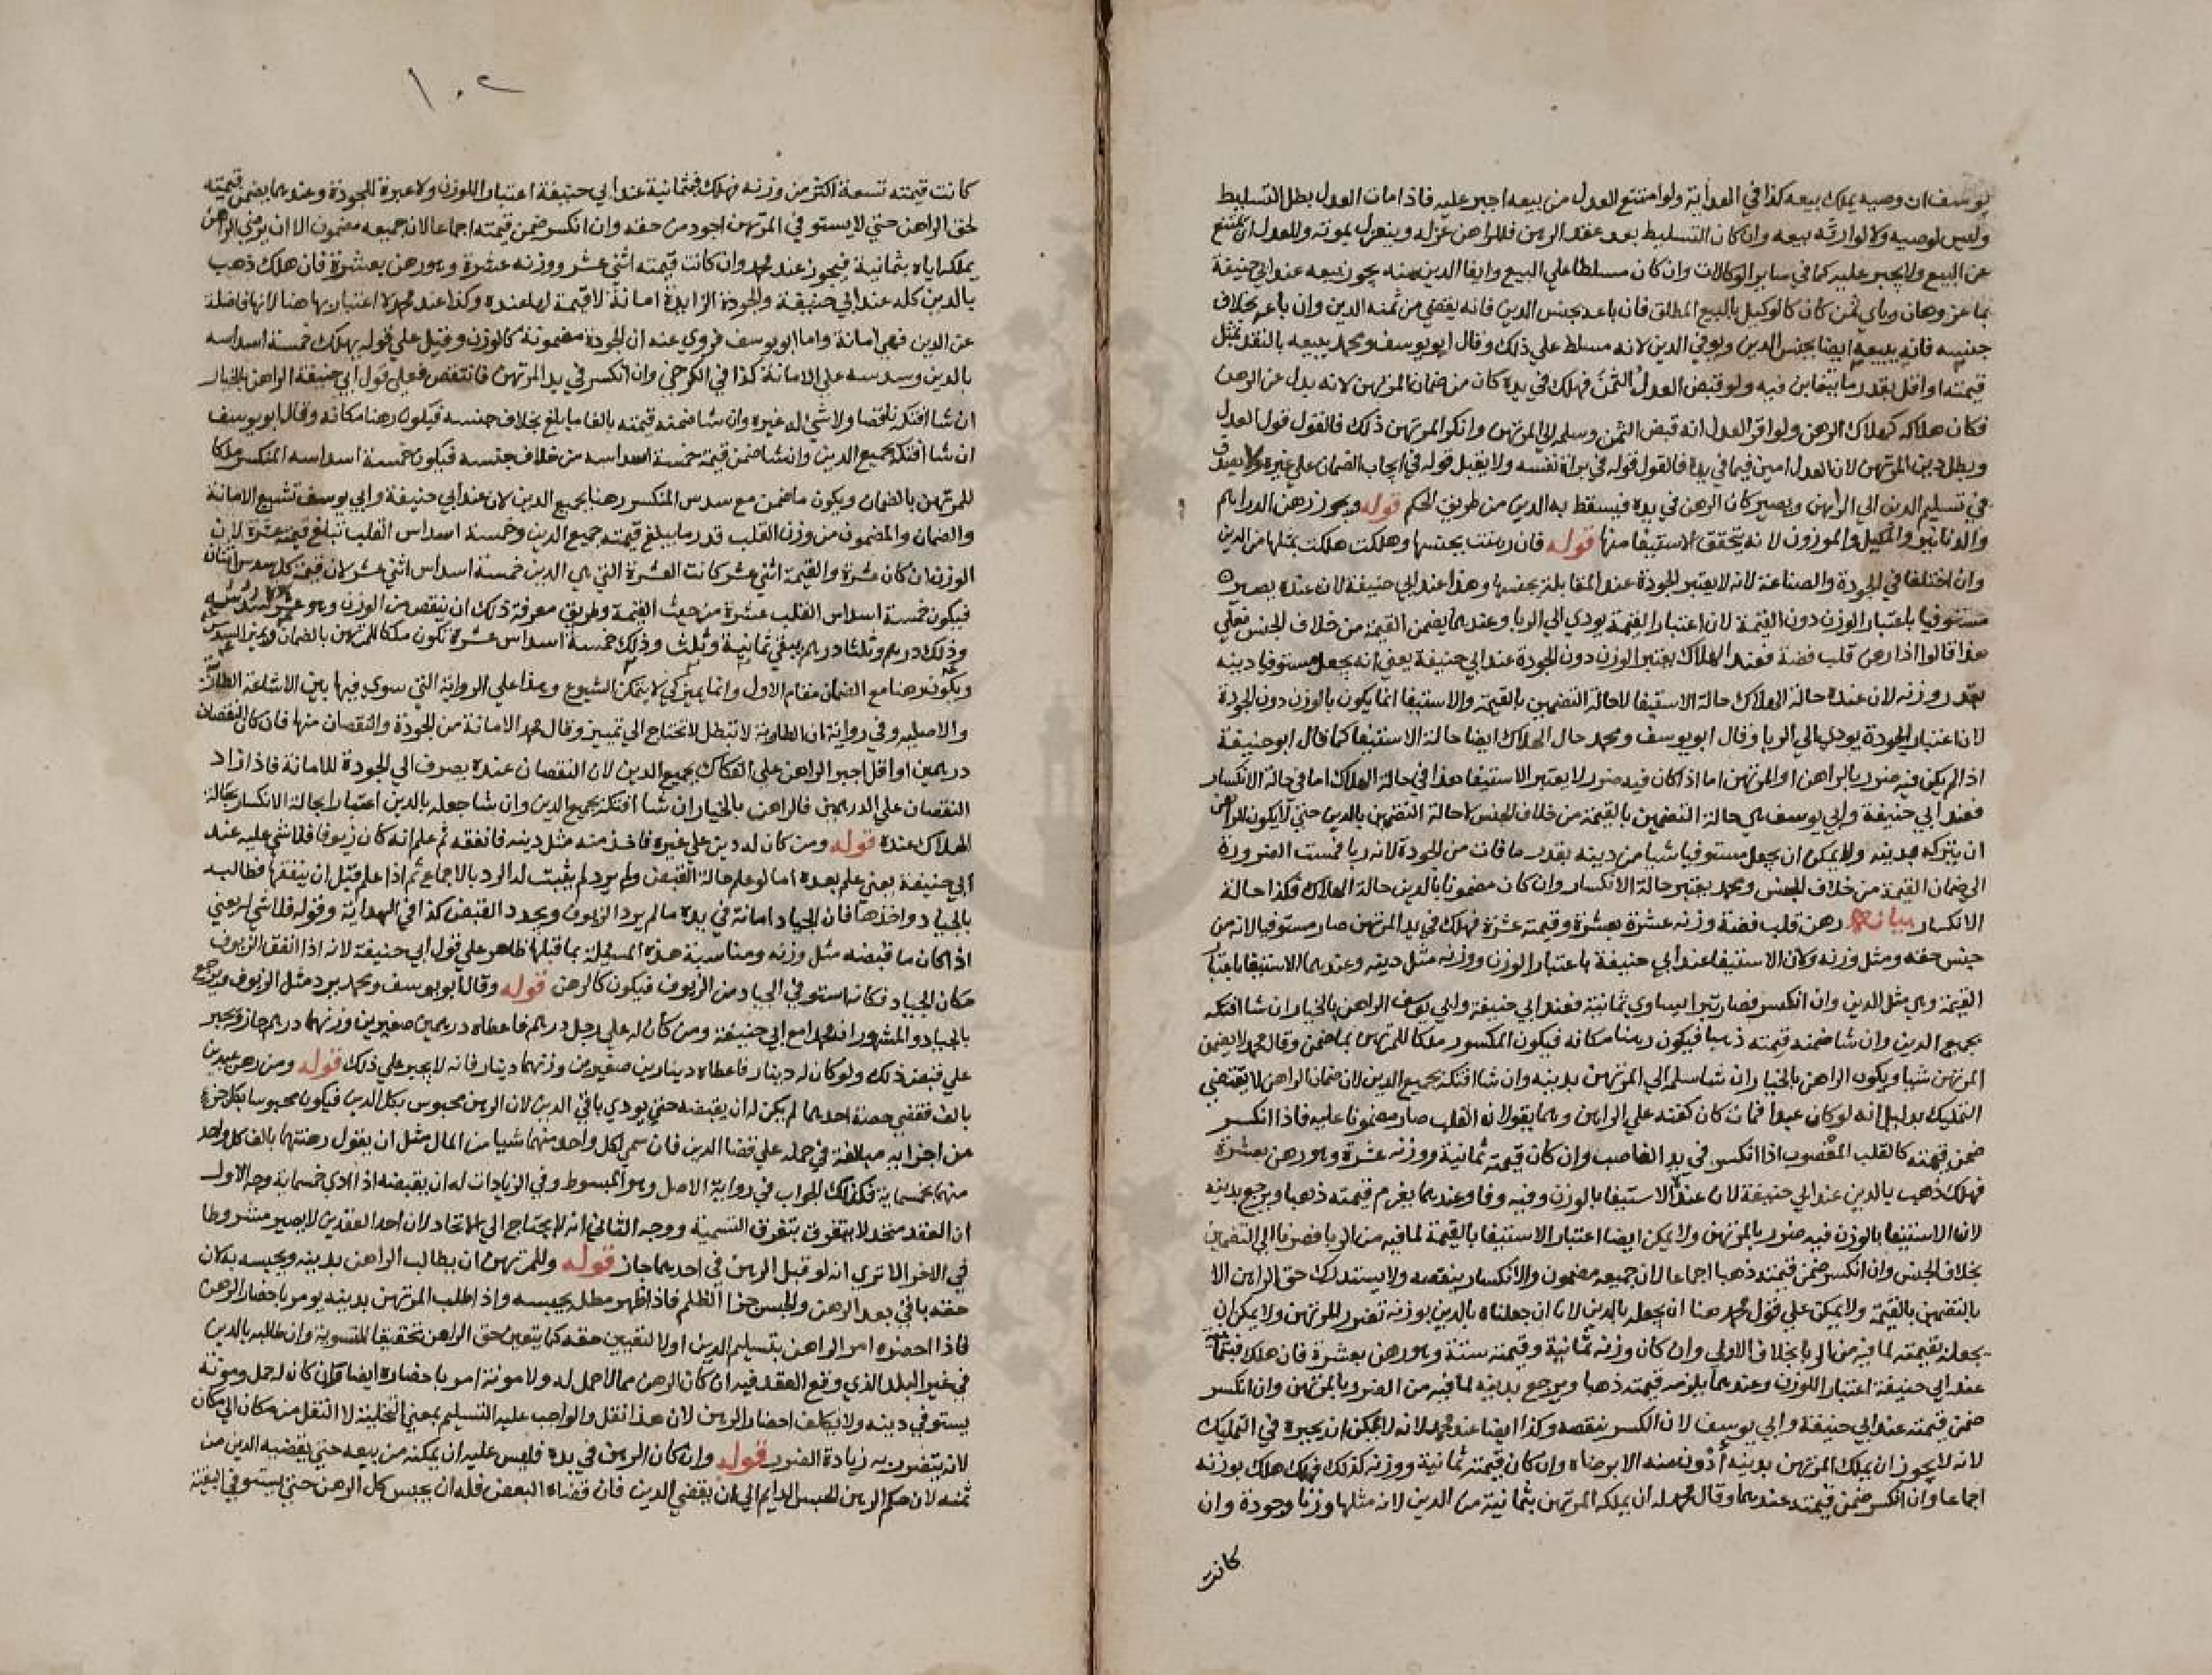 يوسف ان وصيه يملك بيعه كذا في الهداية ولو امتنع العدل من بيعه اجبر عليه فاذا مات العدل بطل التسليط
وليس لوصيه ولا لوارثه بيعه وان كان التسليط بعد عقد الرهن فللراهن عزله وينعزل بموته وللعدل ان يمتنع
عن البيع ولا يجبر عليه كما في ساير الوكالات وان كان مسلطا علي البيع وايفا الدين منه يجوز بيعه عند ابي حنيفة
بما عز وهان وباي ثمن كان كالوكيل بالبيع المطلق فان باعه بجنس الدين فانه يقضي من ثمنه الدين وان باعه بخلاف
جنسه فانه يبيعه ايضا بجنس الدين ويوفي الدين لانه مسلط علي ذلك وقال ابو يوسف ومحمد يبيعه بالنقد بمثل
قيمته او اقل بقدر ما يتغابن فيه ولو قبض العدل الثمن فهلك في يده كان من ضمان المرتهن لانه بدل عن الرهن
فكان هلاكه كهلاك الرهن ولو اقر العدل انه قبض الثمن وسلمه الي المرتهن وانكر المرتهن ذلك فالقول قول العدل
وبطل دين المرتهن لان العدل امين فيما في يده فالقول قوله في براة نفسه ولا يقبل قوله في ايجاب الضمان علي غيره ولا يصدق
في تسليم الدين الي الراهن ويصير كان الرهن في يده فيسقط به الدين من طريق الحكم قوله ويجوز رهن الدراهم
والدنانير والمكيل والموزون لانه يتحقق الاستيفا منها قوله فان رهنت بجنسها وهلكت هلكت بمثلها من الدين
وان اختلفا في الجودة والصناعة لانه لا يعتبر الجودة عند المقابلة بجنسها وهذا عند ابي حنيفة لان عنده يصير
مستوفيا باعتبار الوزن دون القيمة لان اعتبار القيمة يودي الي الربا وعندهما يضمن القيمة من خلاف الجنس فعلي
هذا قالوا اذا رهن قلب فضة فعند الهلاك يعتبر الوزن دون الجودة عند ابي حنيفة يعني انه يجعل مستوفيا دينه
بقدر وزنه لان عنده حالة الهلاك حالة الاستيفا لا حالة التضمين بالقيمة والاستيفا انما يكون بالوزن دون الجودة
لان اعتبار الجودة يودي الي الربا وقال ابو يوسف ومحمد حال الهلاك ايضا حالة الاستيفا كما قال ابو حنيفة
اذا لم يكن فيه ضرر بالراهن او المرتهن اما اذا كان فيه ضرر لا يعتبر الاستيفا هذا في حالة الهلاك اما في حالة الانكسار
فعند ابي حنيفة وابي يوسف هي حالة التضمين بالقيمة من خلاف الجنس لا حالة التضمين بالدين حتي لا يكون للراهن
ان يتركه بدينه ولا يمكن ان يجعل مستوفيا شيا من دينه بقدر ما فات من الجودة لانه ربا فمست الضرورة
الي ضمان القيمة من خلاف الجنس ومحمد يعتبر حالة الانكسار وان كان مضمونا بالدين حالة الهلاك فكذا حالة
الانكسار بيانه رهن قلب فضة وزنه عشرة بعشرة وقيمته عشرة فهلك في يد المرتهن صار مستوفيا لانه من
جنس حقه ومثل وزنه وكان الاستيفا عند ابي حنيفة باعتبار الوزن ووزنه مثل دينه وعندهما الاستيفا باعتبار
القيمة وهي مثل الدين وان انكسر فصارت يساوي ثمانية فعند ابي حنيفة وابي يوسف الراهن بالخيار ان شا افتكه
بجميع الدين وان شا ضمنه قيمته ذهبا فيكون رهنا مكانه فيكون المكسور ملكا للمرتهن بما ضمن وقال محمد لا يضمن
المرتهن شيا ويكون الراهن بالخيار ان شا سلمه الي المرتهن بدينه وان شا افتكه بجميع الدين لان ضمان الراهن لا يقتضي
التمليك بدليل انه لو كان عبدا فمات كان كفنه علي الراهن وهما يقولان القلب صار مضمونا عليه فاذا انكسر
ضمن قيمته كالقلب المغصوب اذا انكسر في يد الغاصب وان كان قيمته ثمانية ووزنه عشرة وهو رهن بعشرة
فهلك ذهب بالدين عند ابي حنيفة لان عنده الاستيفا بالوزن وفيه وفا وعندهما يغرم قيمته ذهبا ويرجع بدينه
لان الاستيفا بالوزن فيه ضرر بالمرتهن ولا يمكن ايضا اعتبار الاستيفا بالقيمة لما فيه من الربا فصرنا الي التضمين
بخلاف الجنس وان انكسر ضمن قيمته ذهبا اجماعا لان جميعه مضمون والانكسار ينقصه ولا يستدرك حق الراهن الا
بالتضمين بالقيمة ولا يمكن علي قول محمد هنا ان يجعله بالدين لانا ان جعلناه بالدين بوزنه تضرر المرتهن ولا يمكن ان
يجعله بقيمته لما فيه من الربا بخلاف الاولي وان كان وزنه ثمانية وقيمته ستة وهو رهن بعشرة فان هلك فبثمانية
عند ابي حنيفة اعتبارا للوزن وعندهما يلزمه قيمته ذهبا ويرجع بدينه لما فيه من الضرر بالمرتهن وان انكسر
ضمن قيمته عند ابي حنيفة وابي يوسف لان الكسر ينقصه وكذا ايضا عند محمد لانه لا يمكن ان يجبره في التمليك
لانه لا يجوز ان يملك المرتهن بدينه ادون منه الا برضاه وان كان قيمته ثمانية ووزنه كذلك فهلك هلك بوزنه
اجماعا وان انكسر ضمن قيمته عندهما وقال محمد له ان يملكه المرتهن بثمانية من الدين لانه مثلها وزنا وجودة وان
كانت
١٠٢
كانت قيمته تسعة اكثر من وزنه فهلك فبثمانية عند ابي حنيفة اعتبارا للوزن ولا عبرة للجودة وعندهما يضمن قيمته
لحق الراهن حتي لا يستوفي المرتهن اجود من حقه وان انكسر ضمن قيمته اجماعا لان جميعه مضمون الا ان يرضي الراهن
يملكه اياه بثمانية فيجوز عند محمد وان كانت قيمته اثني عشر ووزنه عشرة وهو رهن بعشرة فان هلك ذهب
بالدين كله عند ابي حنيفة والجودة الزايدة امانة لا قيمة لها عنده وكذا عند محمد لا اعتبار بها هنا لانها فاضلة
عن الدين فهي امانة واما ابو يوسف فروي عنه ان الجودة مضمونة كالوزن وقيل علي قوله يهلك خمسة اسداسه
بالدين وسدسه علي الامانة كذا في الكرخي وان انكسر في يد المرتهن فانتقص فعلي قول ابي حنيفة الراهن بالخيار
ان شا افتكه ناقصا ولا شي له غيره وان شا ضمنه قيمته بالغا ما بلغ بخلاف جنسه فيكون رهنا مكانه وقال ابو يوسف
ان شا افتكه بجميع الدين وان شا ضمن قيمة خمسة اسداسه من خلاف جنسه فيكون خمسة اسداسه المنكسر ملكا
للمرتهن بالضمان ويكون ما ضمن مع سدس المنكسر رهنا بجميع الدين لان عند ابي حنيفة وابي يوسف تشيع الامانة
والضمان والمضمون من وزن القلب قدر ما يبلغ قيمته جميع الدين وخمسة اسداس القلب تبلغ قيمته عشرة لان
الوزن ان كان عشرة والقيمة اثني عشر كانت العشرة التي هي الدين خمسة اسداس اثني عشر لان قيمة كل سدس اثنان
فيكون خمسة اسداس القلب عشرة من حيث القيمة وطريق معرفة ذلك ان ينقص من الوزن وهو عشرة سدسه
وذلك درهم وثلثا درهم يبقي ثمانية وثلث وذلك خمسة اسداس عشرة تكون ملكا للمرتهن بالضمان ويميز السدس
ويكون رهنا مع الضمان مقام الاول وانما يميز كي لا يتمكن الشيوع وهذا علي الرواية التي سوي فيها بين الاشاعة الطارية
والاصلية وفي رواية ان الطارية لا تبطل لا تحتاج الي تمييز وقال محمد الامانة من الجودة والنقصان منها فان كان النقصان
درهمين او اقل اجبر الراهن علي الفكاك بجميع الدين لان النقصان عنده يصرف الي الجودة للامانة فاذا زاد
النقصان علي الدرهمين فالراهن بالخيار ان شا افتكه بجميع الدين وان شا جعله بالدين اعتبارا بحالة الانكسار بحالة
الهلاك عنده قوله ومن كان له دين علي غيره فاخذ منه مثل دينه فانفقه ثم علم انه كان زيوفا فلا شي عليه عند
ابي حنيفة يعني علم بعده اما لو علم حالة القبض ولم يرد لم يثبت له الرد بالاجماع ثم اذا علم قبل ان ينفقها فطالبه
بالجياد واخذها فان الجياد امانة في يده ما لم يرد الزيوف ويجدد القبض كذا في الهداية وقوله فلا شي له يعني
اذا كان ما قبضه مثل وزنه ومناسبة هذه المسيلة بما قبلها ظاهر علي قول ابي حنيفة لانه اذا انفق الزيوف
مكان الجياد فكانه استوفي الجياد من الزيوف فيكون كالرهن قوله وقال ابو يوسف ومحمد يرد مثل الزيوف ويرجع
بالجياد والمشهور ان محمدا مع ابي حنيفة ومن كان له علي رجل درهم فاعطاه درهمين صغيرين وزنهما درهم جاز ويجبر
علي قبض ذلك ولو كان له دينار فاعطاه دينارين صغيرين وزنهما دينار فانه لا يجبر علي ذلك قوله ومن رهن عبدين
بالف فقضي حصة احدهما لم يكن له ان يقبضه حتي يودي باقي الدين لان الرهن محبوس بكل الدين فيكون محبوسا بكل جزء
من اجزايه مبالغة في حمله علي قضا الدين فان سمي لكل واحد منهما شيا من المال مثل ان يقول رهنتهما بالف كل واحد
منهما بخمسماية فكذلك الجواب في رواية الاصل وهو المبسوط وفي الزيادات له ان يقبضه اذا ادي خمسماية وجه الاول
ان العقد متحد لا يتفرق بتفرق التسمية ووجه الثاني انه لا يحتاج الي الاتحاد لان احد العقدين لا يصير مشروطا
في الاخر الا تري انه لو قبل الرهن في احدهما جاز قوله وللمرتهن ان يطالب الراهن بدينه ويحبسه به لان
حقه باقي بعد الرهن والحبس جزا الظلم فاذا ظهر مطله يحبسه واذا طلب المرتهن بدينه يومر باحضار الرهن
فاذا احضره امر الراهن بتسليم الدين اولا لتعيين حقه كما يتعين حق الراهن تحقيقا للتسوية وان طالبه بالدين
في غير البلد الذي وقع العقد فيه ان كان الرهن مما لا حمل له ولا مونة امر باحضاره ايضا وان كان له حمل ومونة
يستوفي دينه ولا يكلف احضار الرهن لان هذا نقل والواجب عليه التسليم بمعني التخلية لا النقل من مكان الي مكان
لانه يتضرر به زيادة الضرر قوله وان كان الرهن في يده فليس عليه ان يمكنه من بيعه حتي يقضيه الدين من
ثمنه لان حكم الرهن الحبس الدايم الي ان يقضي الدين فان قضاه البعض فله ان يحبس كل الرهن حتي يستوفي البقية